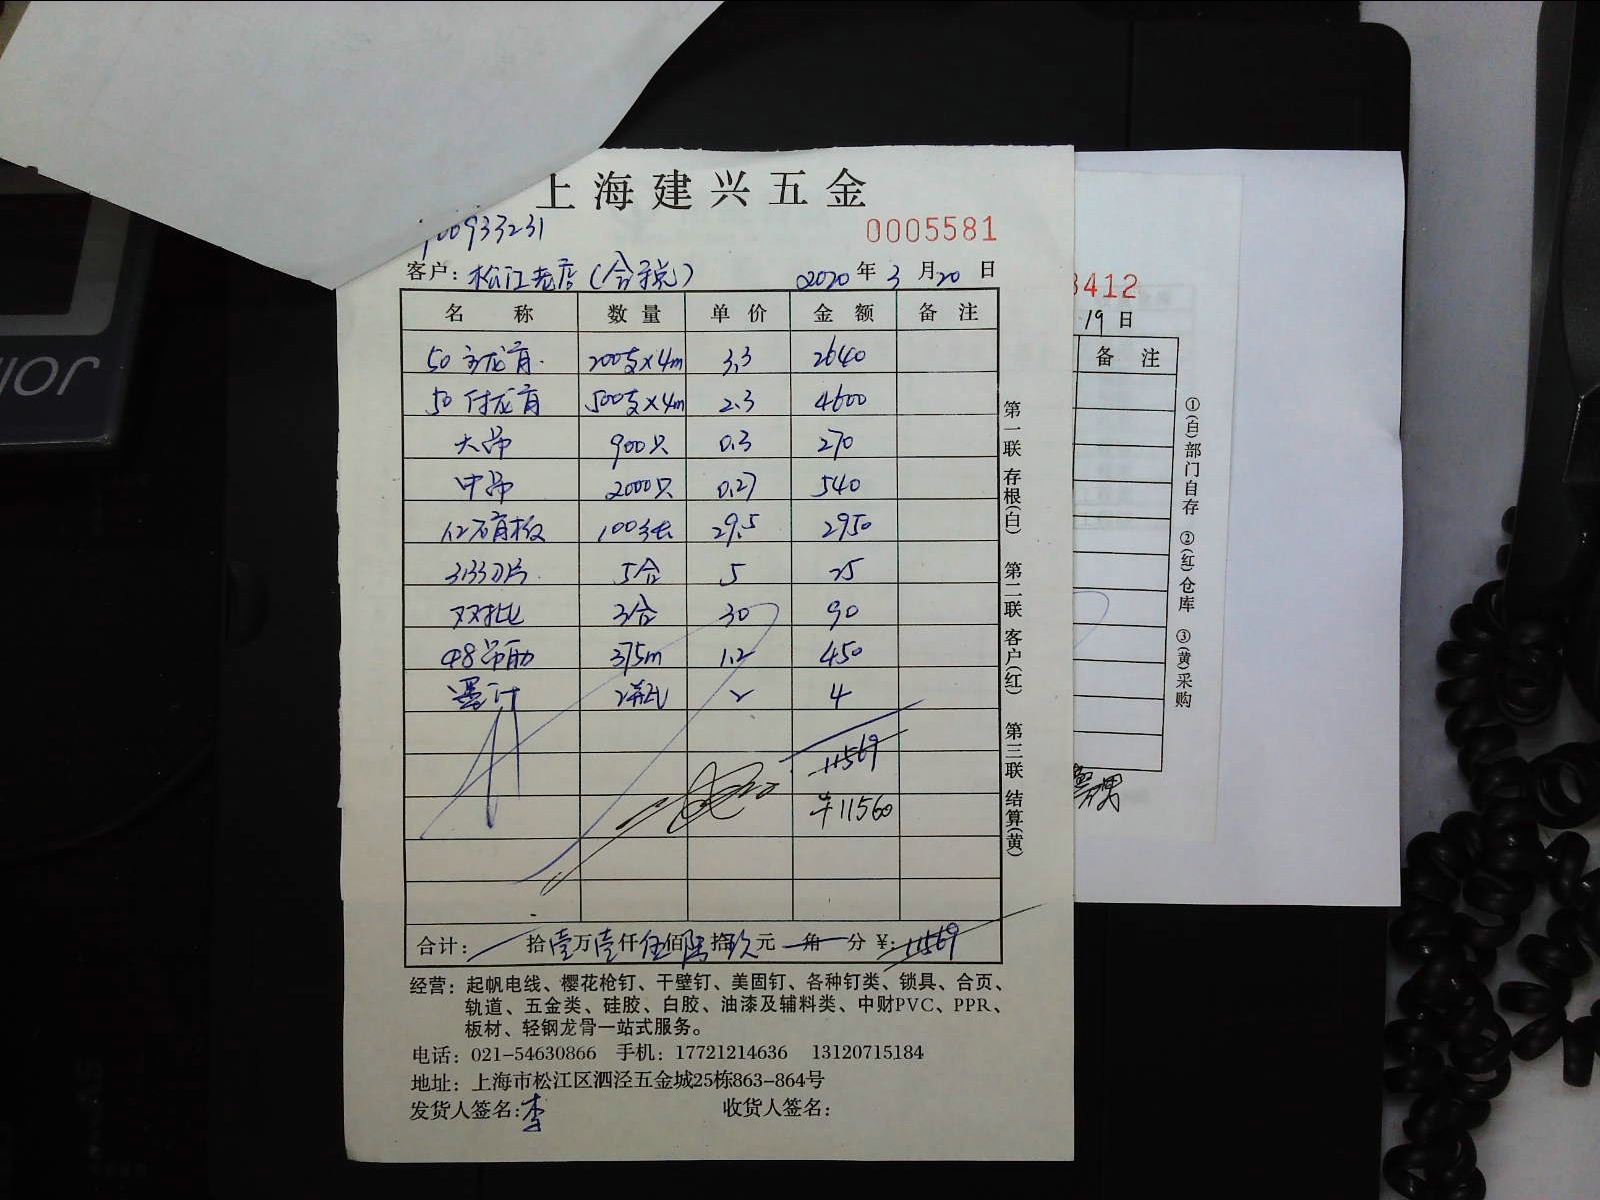 上海建兴五金
00933231
0005581
客户：松江老店（含税） 2020年3月20日
名称 数量 单价 金额 备注
50主龙骨 200支×4m 3.3 2640
50付龙骨 500支×4m 2.3 4600
大吊 900只 0.3 270
中吊 2000只 0.27 540
1.2石膏板 100张 29.5 2950
3133刀片 5合 5 25
双批 3合 30 90
φ8吊筋 375m 1.2 450
墨汁 2瓶 2 4
11569
¥11560
合计： 拾壹万壹仟伍佰陆拾玖元角分 ¥：11569
经营：起帆电线、樱花枪钉、干壁钉、美固钉、各种钉类、锁具、合页、
轨道、五金类、硅胶、白胶、油漆及辅料类、中财PVC、PPR、
板材、轻钢龙骨一站式服务。
电话：021-54630866 手机：17721214636 13120715184
地址：上海市松江区泗泾五金城25栋863-864号
发货人签名：李 收货人签名：
第一联 存根（白） 第二联 客户（红） 第三联 结算（黄）
3412
19日
备注
①（白）部门自存 ②（红）仓库 ③（黄）采购
JOL